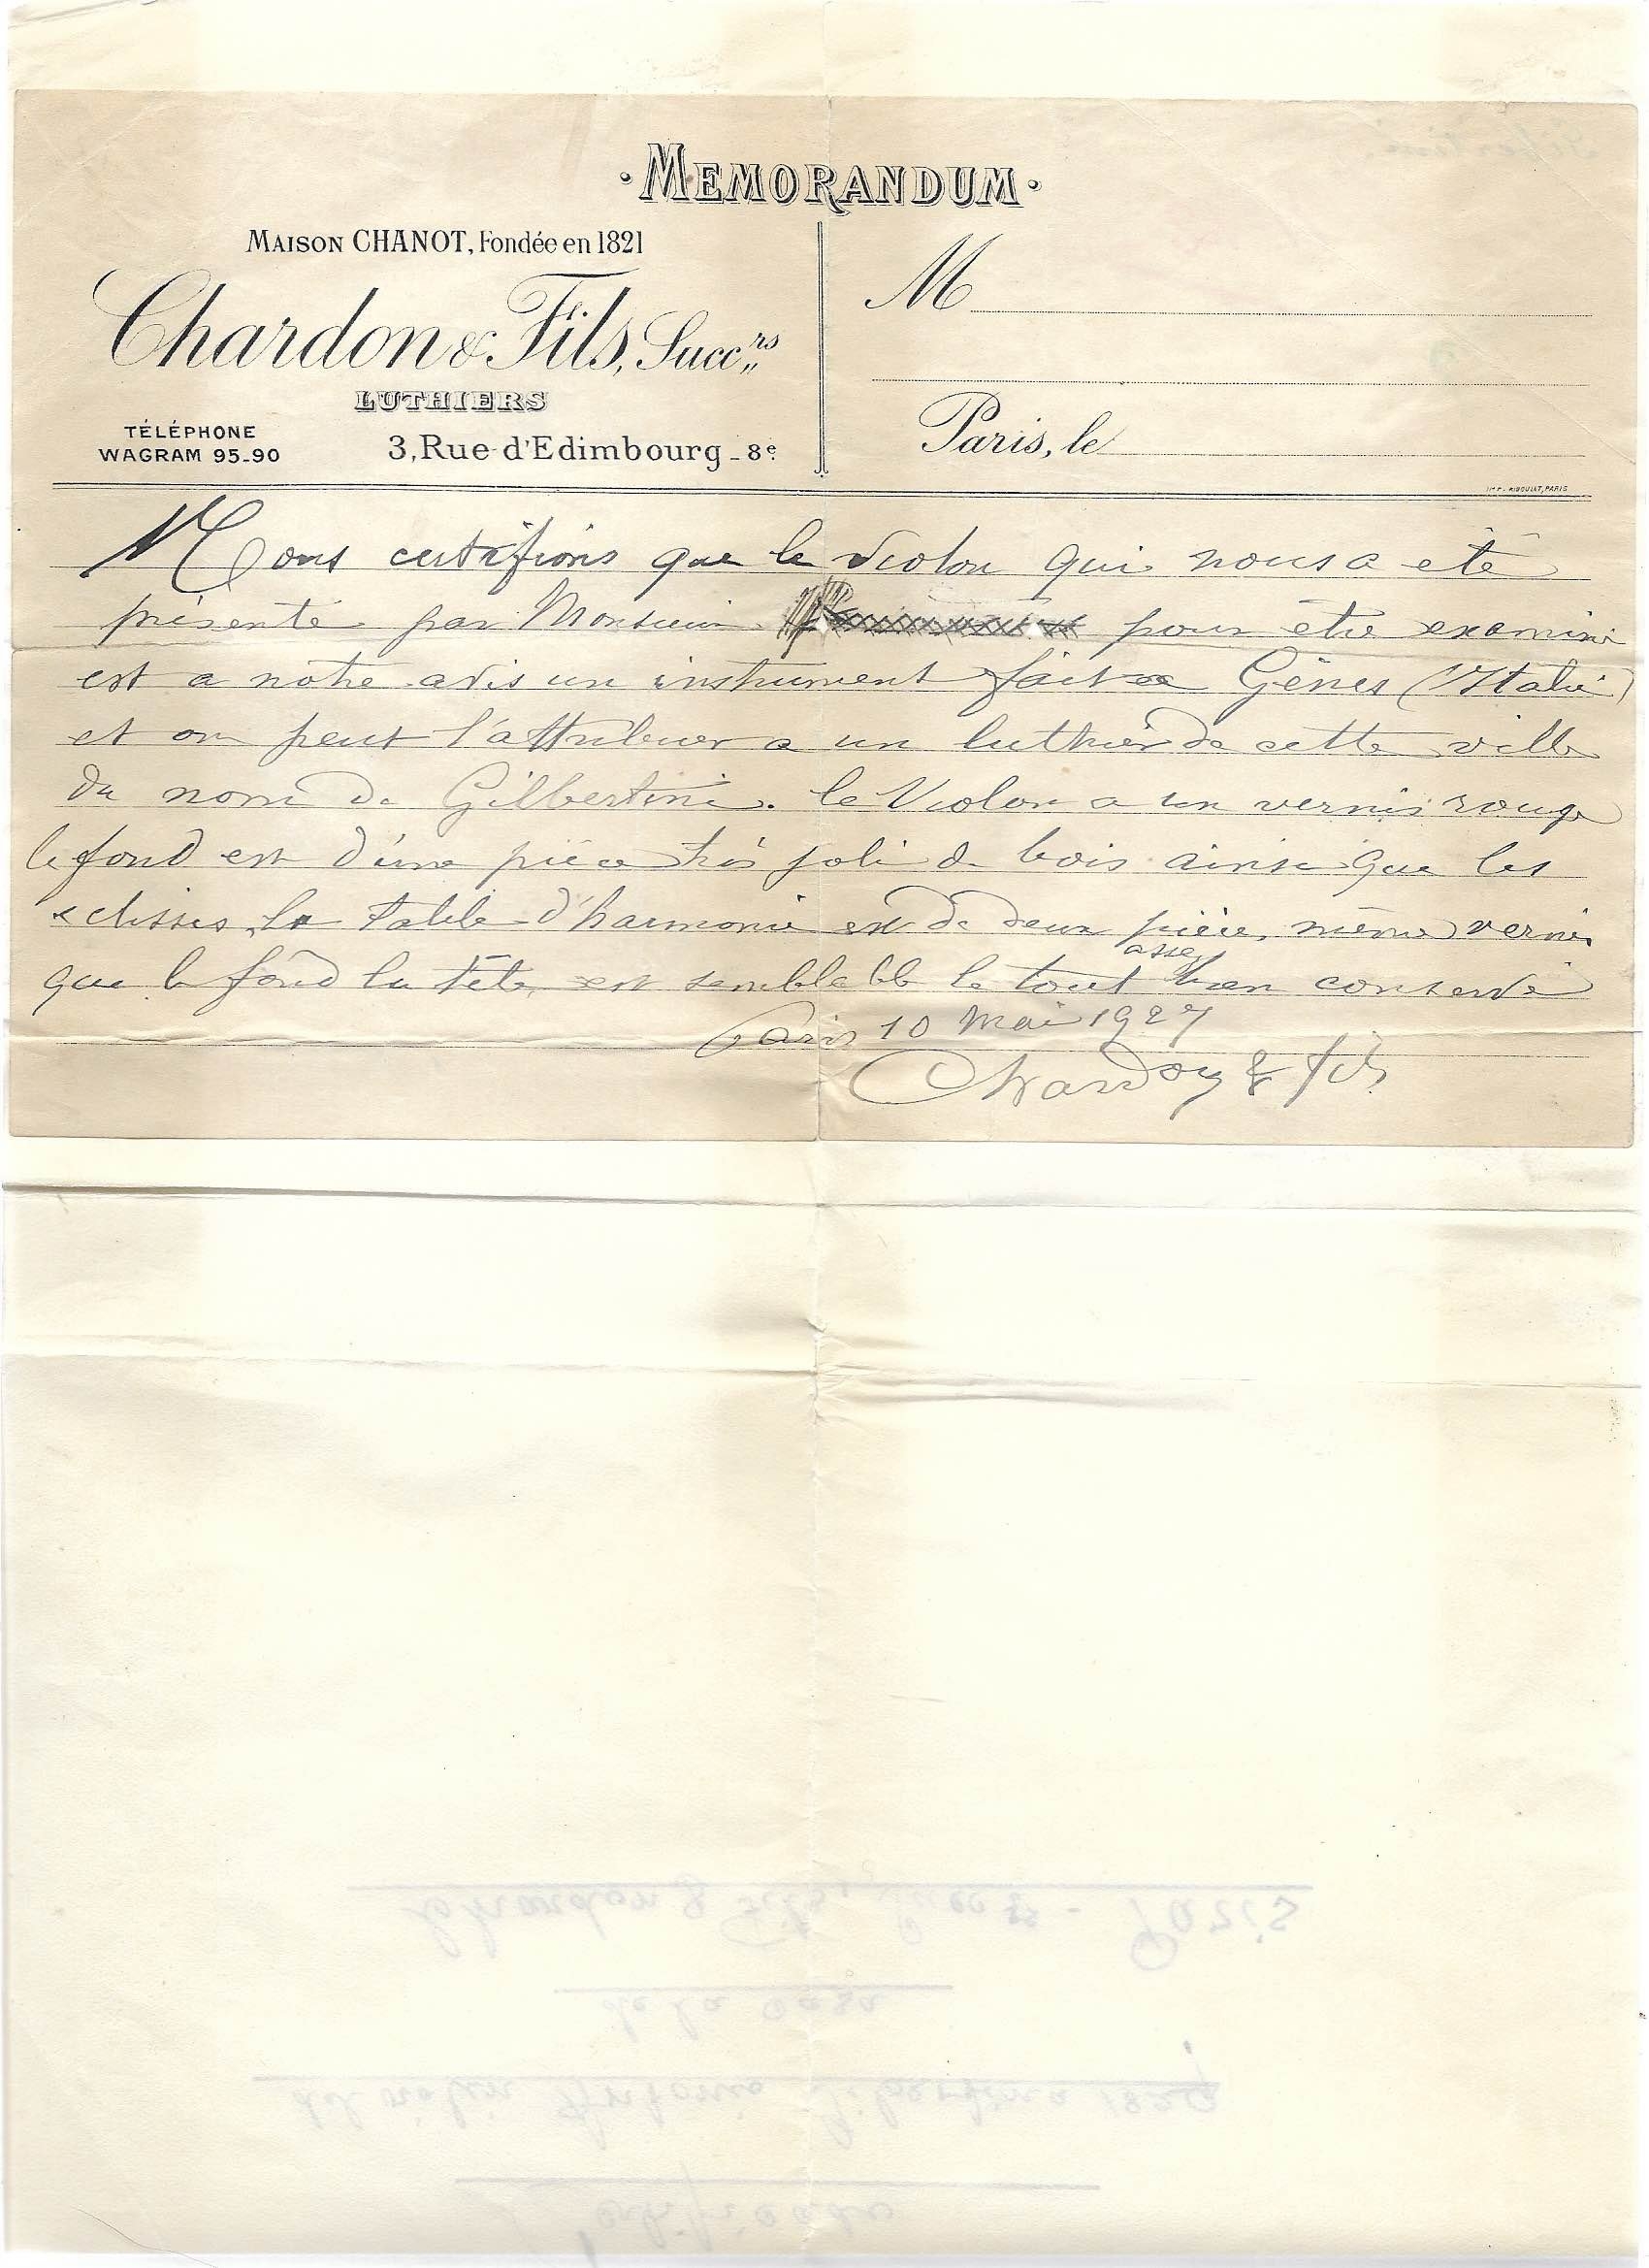 ·MEMORANDUM·
MAISON CHANOT, Fondée en 1821
Chardon & Fils, Succrs
LUTHIERS
TÉLÉPHONE
WAGRAM 95-90
3, Rue d'Edimbourg - 8e
M
Paris, le
IMP. RIBOULAT, PARIS
Nous certifions que le Violon qui nous a eté
présenté par Monsieur pour être examiné
est a notre avis un instrument fait a Gênes (Italie)
et on peut l'attribuer a un luthier de cette ville
du nom de Gilbertini. le Violon a un vernis rouge
le fond est d'une pièce très joli de bois ainsi que les
eclisses, la table d'harmonie est de deux pièces, même vernis
que le fond la tête est semblable le tout assez bien conservé
Paris 10 Mai 1927
Chardon & fils
Chardon & Fils, Succrs - Paris
de la casa
del violin Antonio